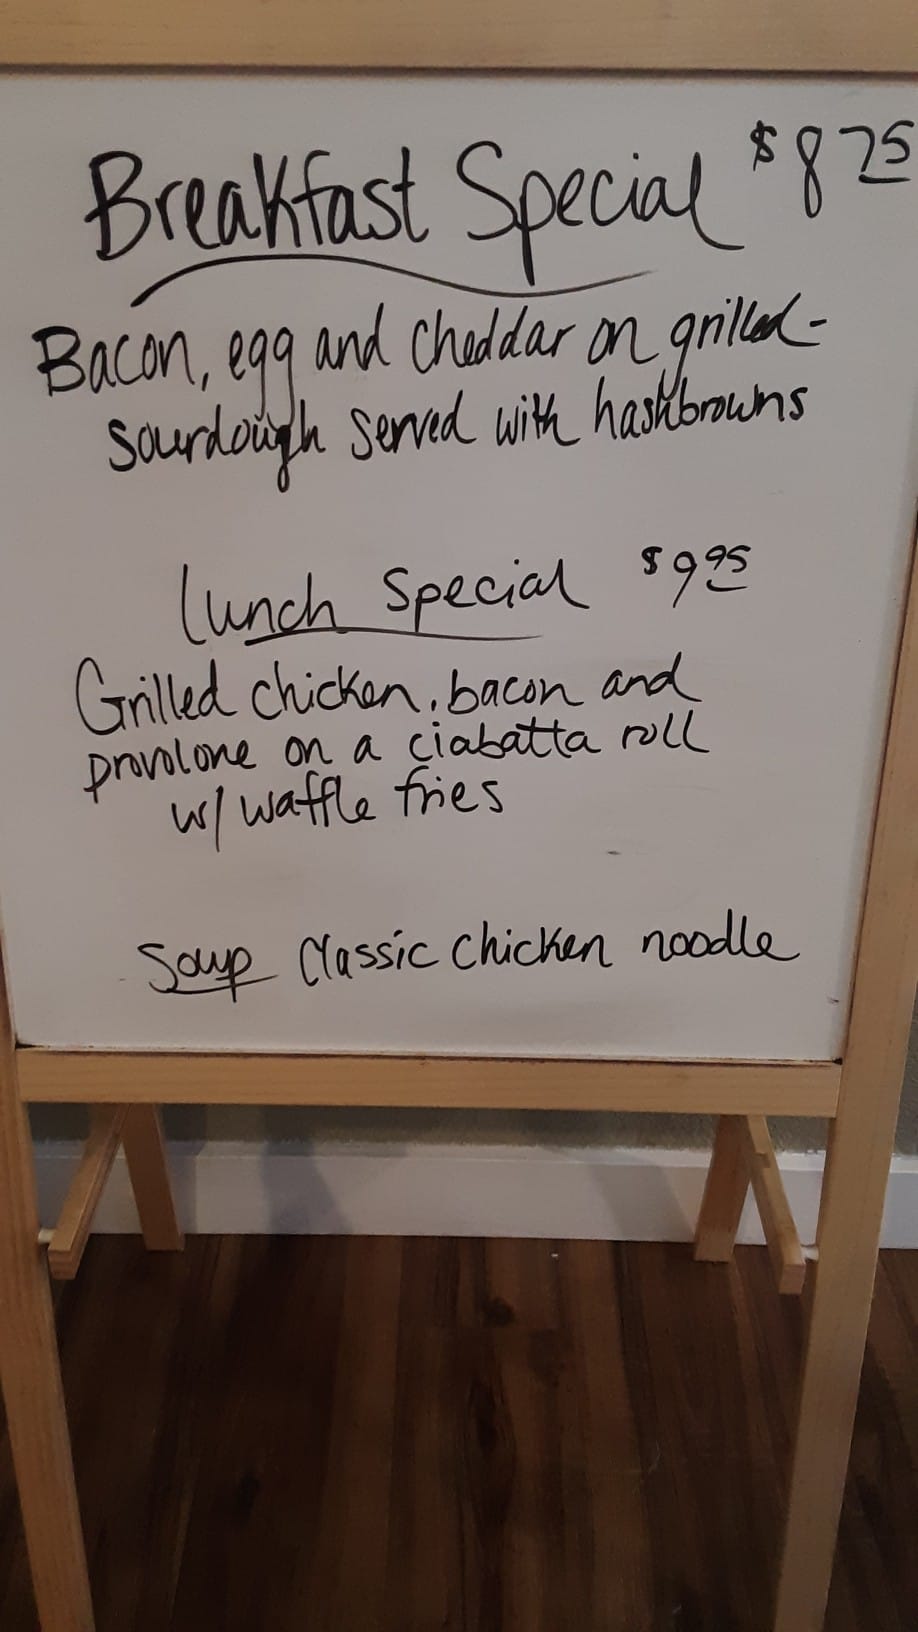 Breakfast Special $8 75
Bacon, egg and cheddar on grilled-
sourdough served with hashbrowns
Lunch Special $9 95
Grilled chicken, bacon and
provolone on a ciabatta roll
w/ waffle fries
Soup Classic Chicken noodle